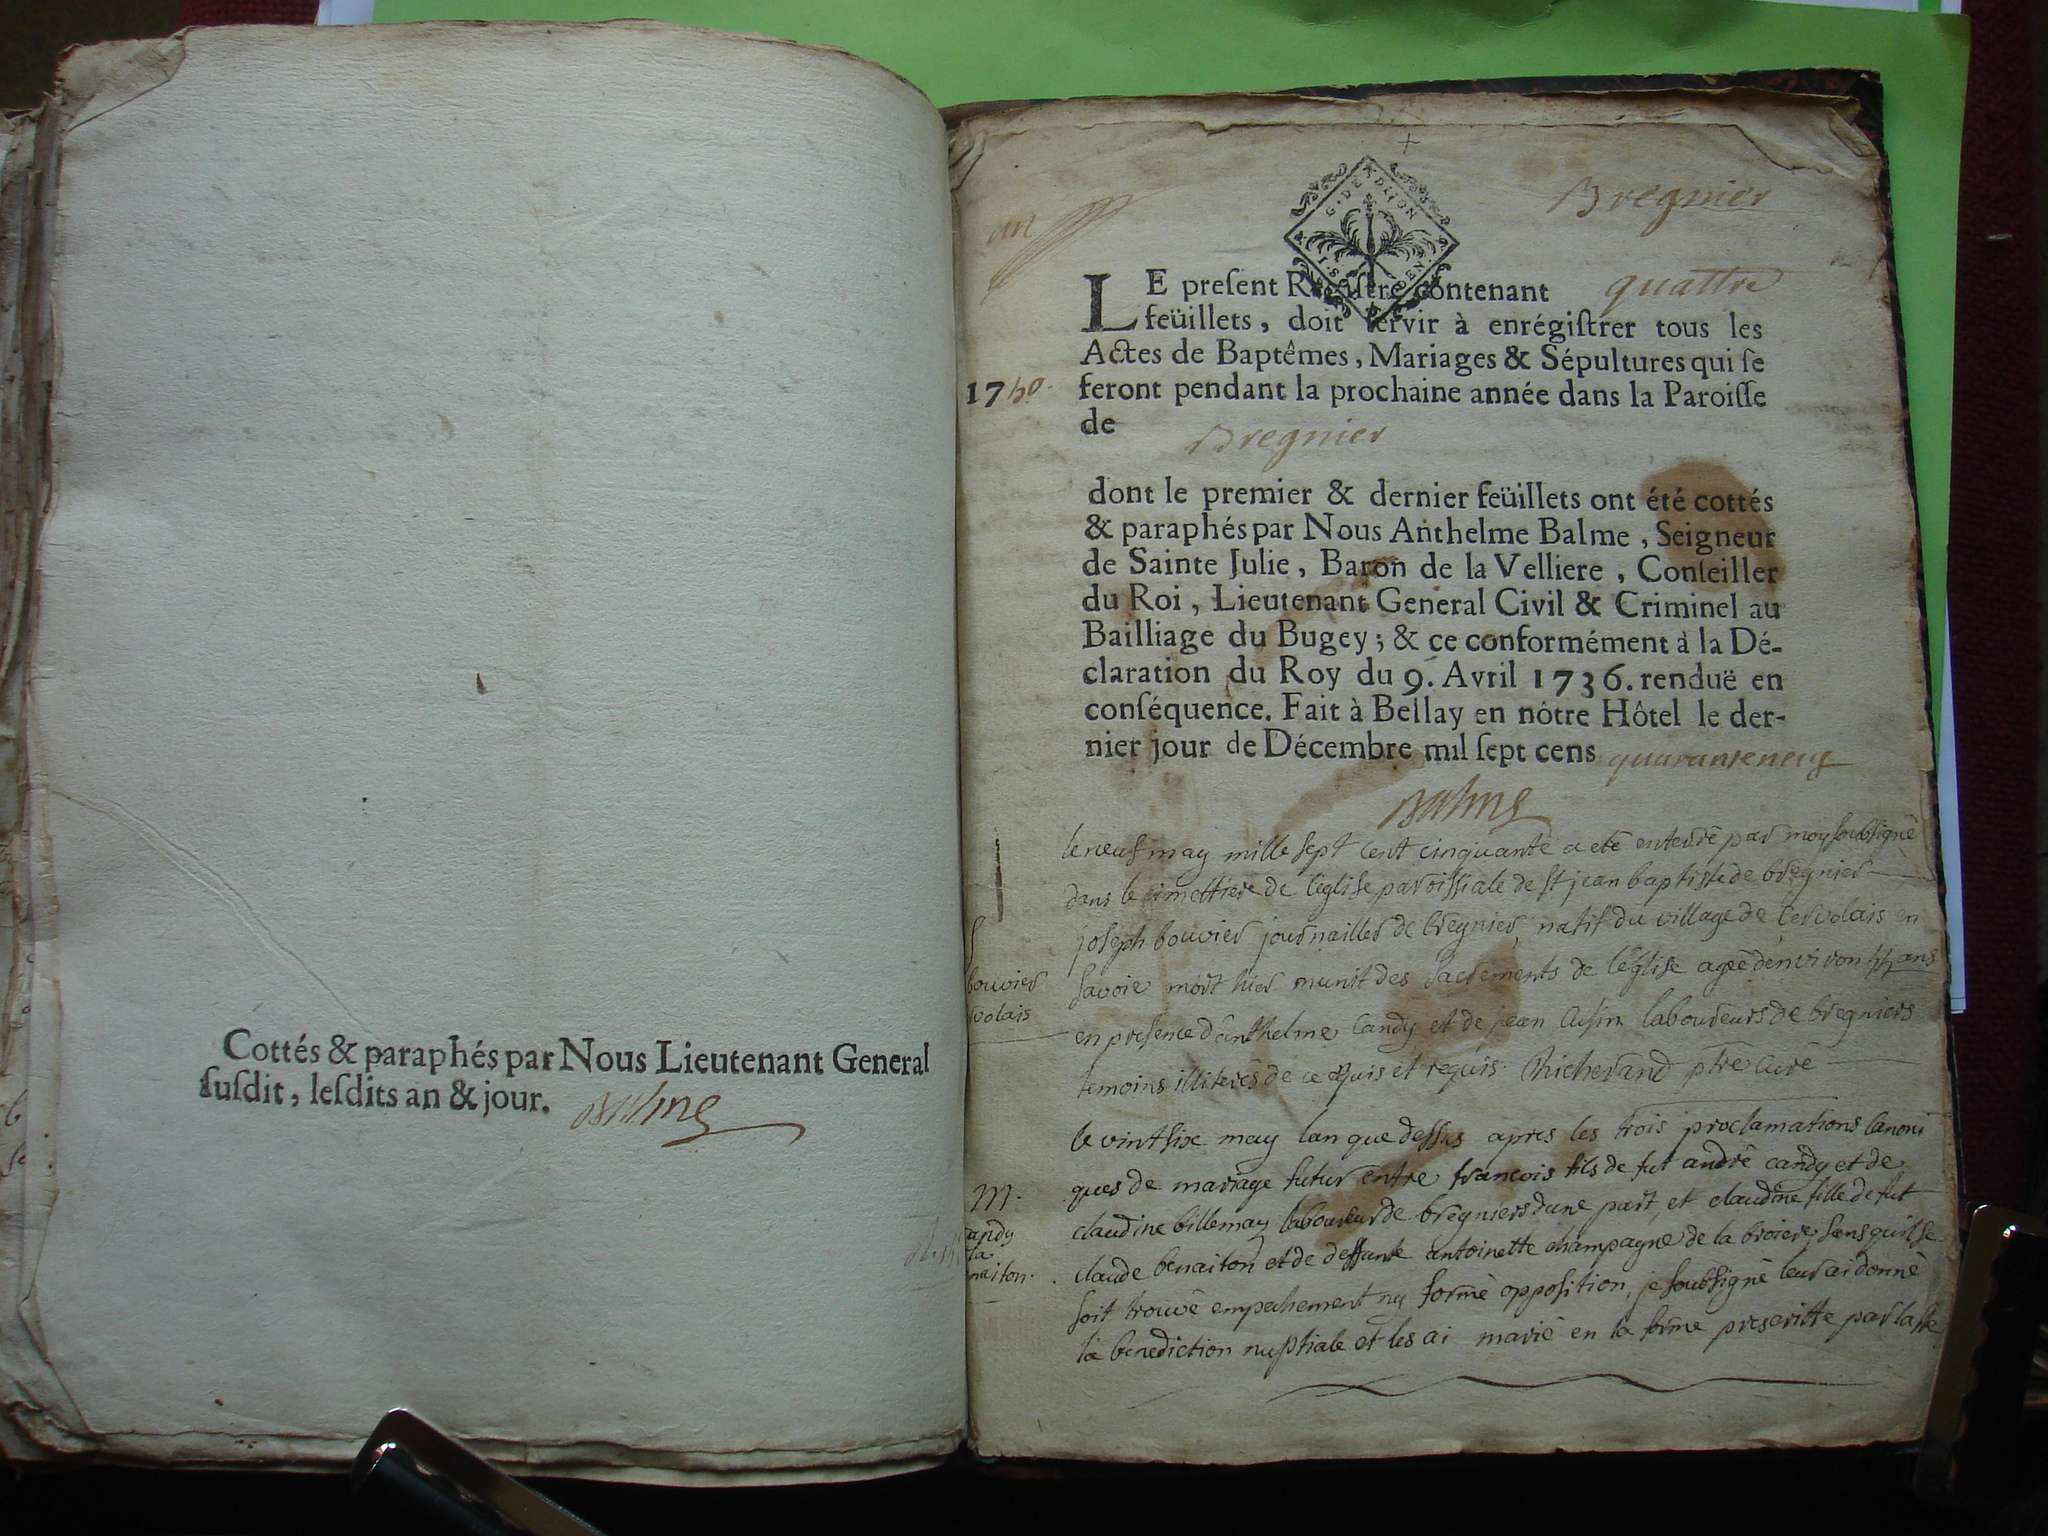 Cottés & paraphés par Nous Lieutenant General
susdit, lesdits an & jour. Balme
Bregnier
un
G. DE DIJON
LE present Registre contenant quattre
feüillets, doit servir à enrégistrer tous les
Actes de Baptêmes, Mariages & Sépultures qui se
1750. feront pendant la prochaine année dans la Paroisse
de Bregnier
dont le premier & dernier feüillets ont été cottés
& paraphés par Nous Anthelme Balme, Seigneur
de Sainte Julie, Baron de la Velliere, Conseiller
du Roi, Lieutenant General Civil & Criminel au
Bailliage du Bugey; & ce conformément à la Dé-
claration du Roy du 9. Avril 1736. renduë en
conséquence. Fait à Bellay en nôtre Hôtel le der-
nier jour de Décembre mil sept cens quaranteneuf
Balme
le neuf may mille sept cent cinquante a eté enterré par moy soubsigné
dans le cimettiere de l'eglise paroissiale de st jean baptiste de bregnier
joseph bouvier journaillier de bregnier, natif du village de cervolais en
savoie mort hier munit des sacrements de l'eglise ageé d'environ ans
en presence d'anthelme candy et de jean laboureurs de bregniers
temoins illiterés de ce et requis. Richerand ptre curé
S
bouvier
volais
le vintsix may lan que dessus apres les trois proclamations canoni
ques de mariage futur entre francois fils de fut andré candy et de
claudine billemaz laboureur de bregniers dune part, et claudine fille de fut
claude benaiton et de deffunte antoinette champagne de la broiere, sans quil se
soit trouvé empechement ny formé opposition, je soubsigné leur ai donné
la benediction nuptiale et les ai marié en la forme prescritte par la ste
M.
andy
la
naiton.